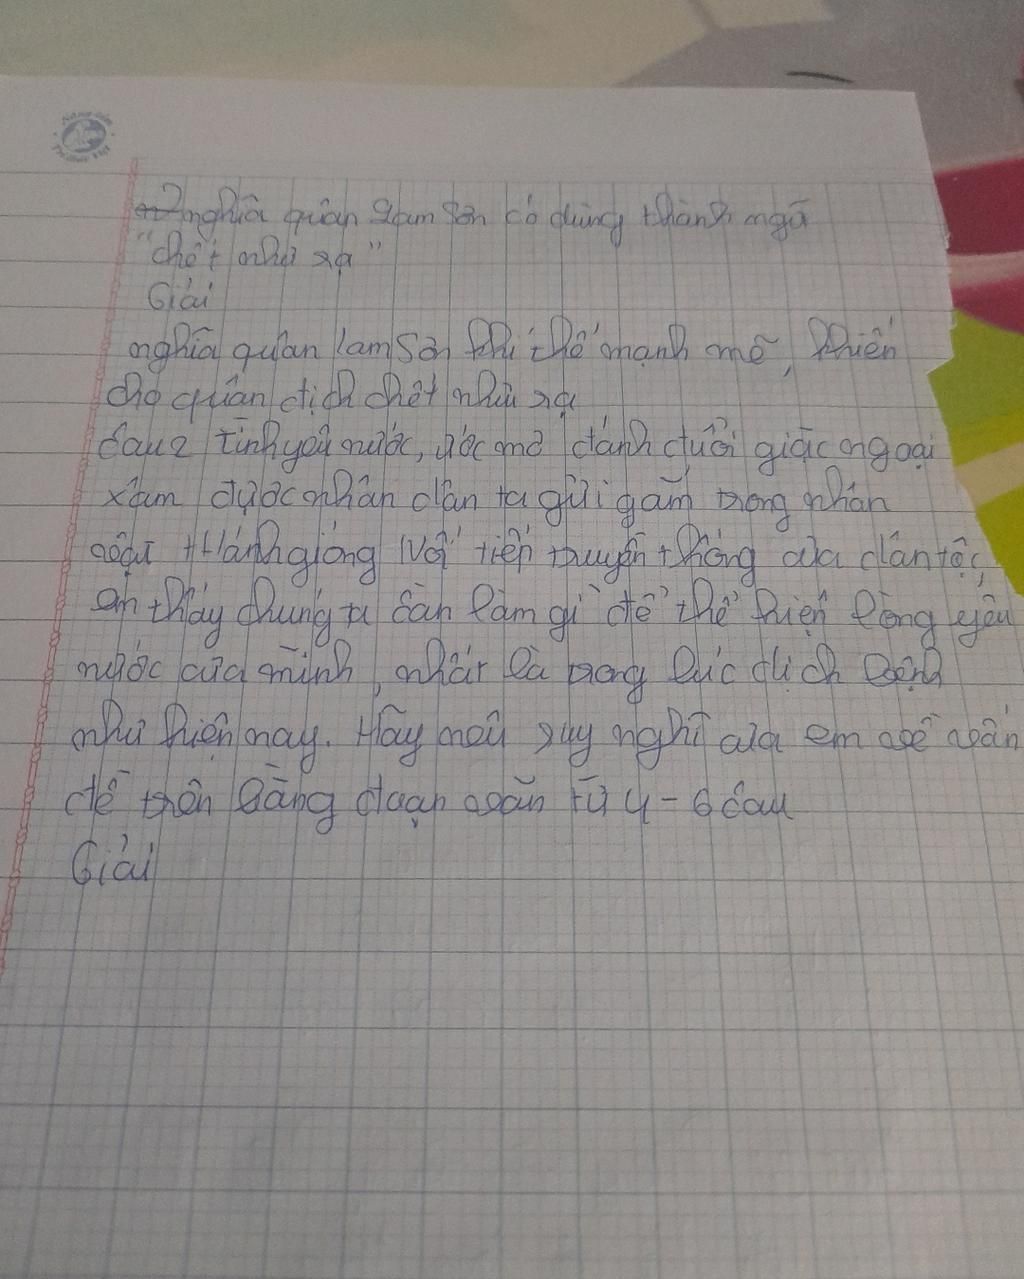 nghĩa quân Lam Sơn có dùng thành ngữ
"chết như rạ"
Giải
nghĩa quân lam Sơn khí thế mạnh mẽ, khiến
cho quân địch chết như rạ
câu 2 tình yêu nước, ước mơ đánh đuổi giặc ngoại
xâm được nhân dân ta gửi gắm trong nhân
vật thánh gióng Nối tiếp truyền thống của dân tộc,
em thấy chúng ta cần làm gì để thể hiện lòng yêu
nước của mình, nhất là trong lúc dịch bệnh
như hiện nay. Hãy nêu suy nghĩ của em về vấn
đề trên bằng đoạn văn từ 4-6 câu
Giải